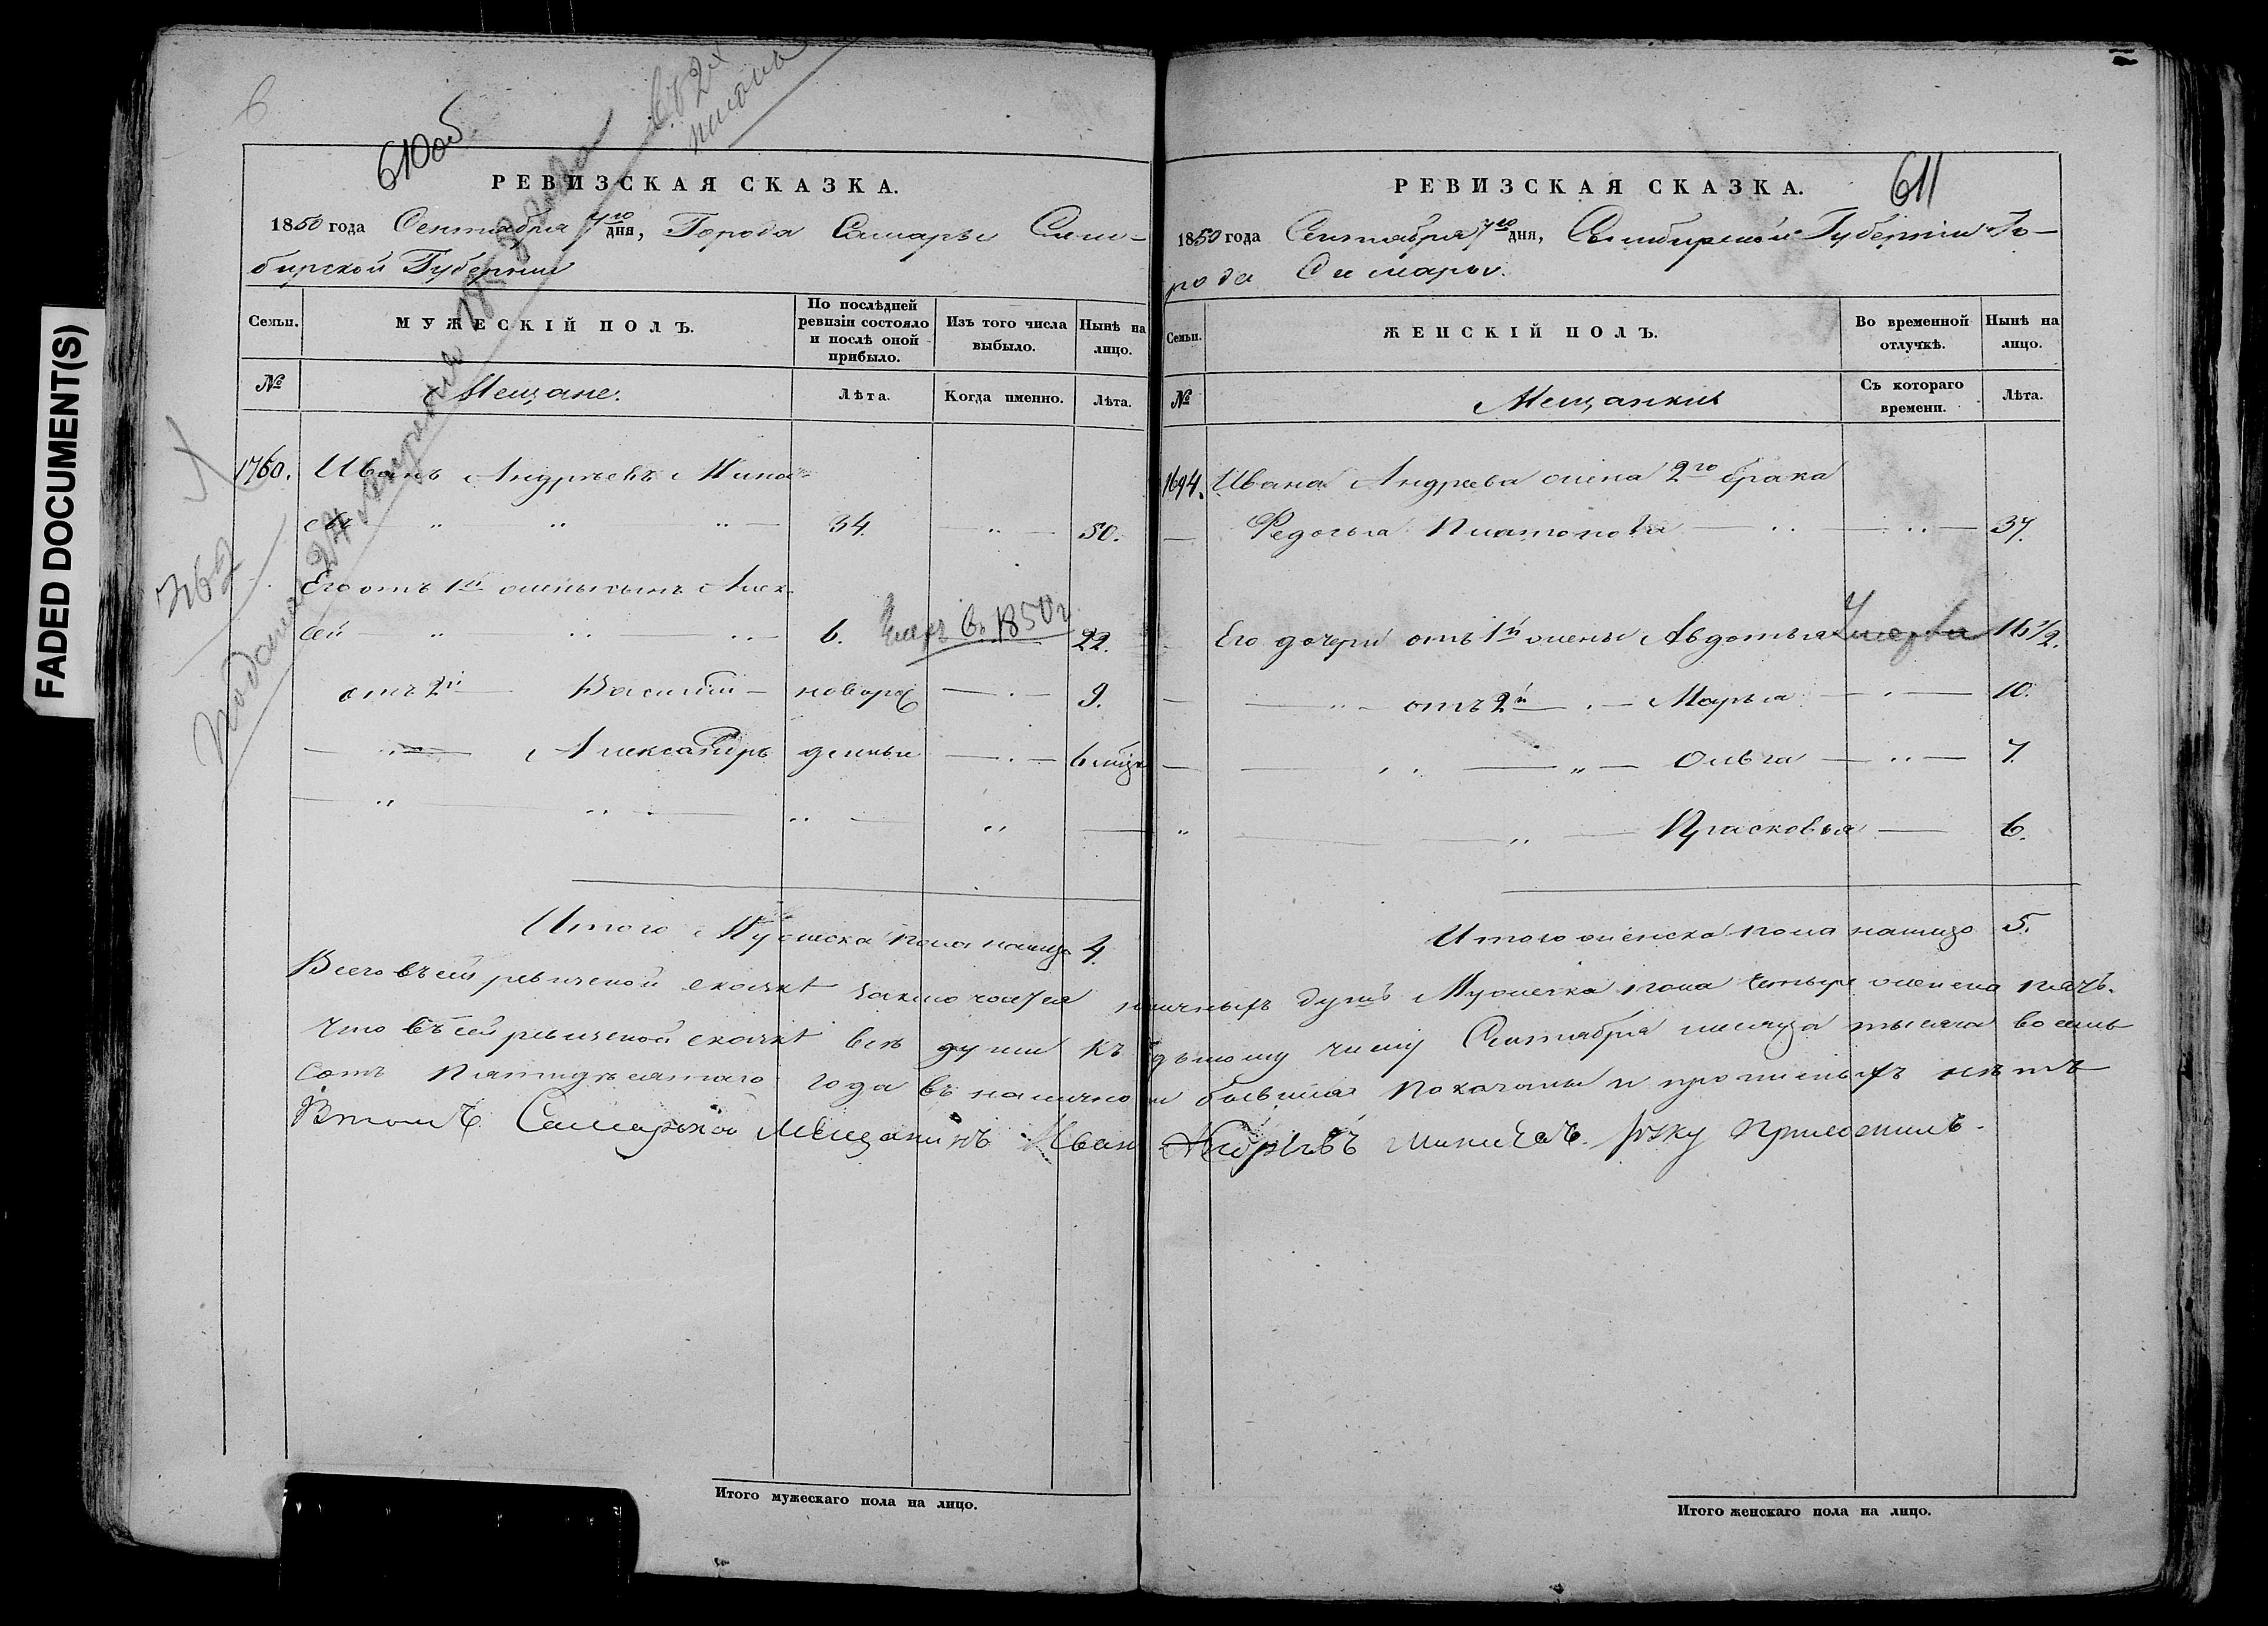 FADED DOCUMENT(S)
6
610 об
въ 2х
Подана 27 Августа 185
362
РЕВИЗСКАЯ СКАЗКА.
1850 года Сентября 7го дня, Города Самары Сим-
бирской Губернии
Семьи.
МУЖЕСКІЙ ПОЛЪ.
По послѣдней ревизіи состояло и послѣ оной прибыло.
Изъ того числа выбыло.
Нынѣ на лицо.
№
Мещане.
Лѣта.
Когда именно.
Лѣта.
1760. Иванъ Андрѣевъ Мина-
34. 50.
Его отъ 1й жены сынъ Алек-
сей 6. 1850 г 22.
отъ 2й Василий новорож 9.
Александръ денные 6 мѣся
Итого Мужеска пола налицо 4.
РЕВИЗСКАЯ СКАЗКА.
611
1850 года Сентября 7го дня, Симбирской Губерніи Го-
рода Самары.
Семьи.
ЖЕНСКІЙ ПОЛЪ.
Во временной отлучкѣ.
Нынѣ на лицо.
№
Мещанки
Съ котораго времени.
Лѣта.
1694. Ивана Андреева жена 2го брака
Федосья Платонова 37.
Его дочери отъ 1й жены Авдотья Умерла 16 1/2.
отъ 2й Марья 10.
Ольга 7.
Прасковья 6.
Итого женска пола налицо 5.
Всего въ сей ревизской сказкѣ заключается наличныхъ душъ Мужеска пола четыре женска пять.
Что въ сей ревизской сказкѣ все души къ седьмому числу Сентября месяца тысяча восемь
сотъ пятидесятаго года въ налично бывшия показаны и прописныхъ нѣтъ
Втомъ Самарской Мещанинъ Иван Андрѣевъ руку Приложилъ.
Итого мужескаго пола на лицо.
Итого женскаго пола на лицо.